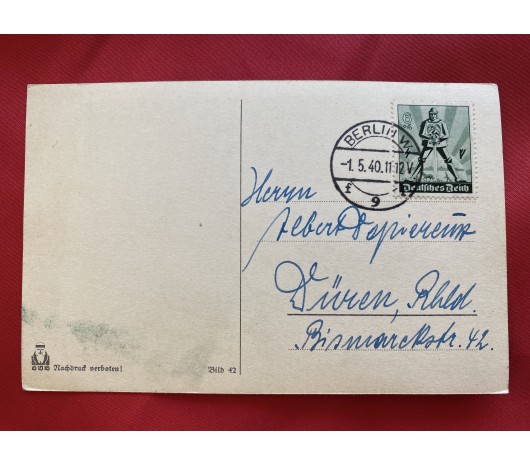 BERLIN W
-1. 5. 40. 11-12 V
f
9
6
Deutsches Reich
Herrn
Albert
Düren, Rhld.
Bismarckstr. 42.
Nachdruck verboten!
Bild 42